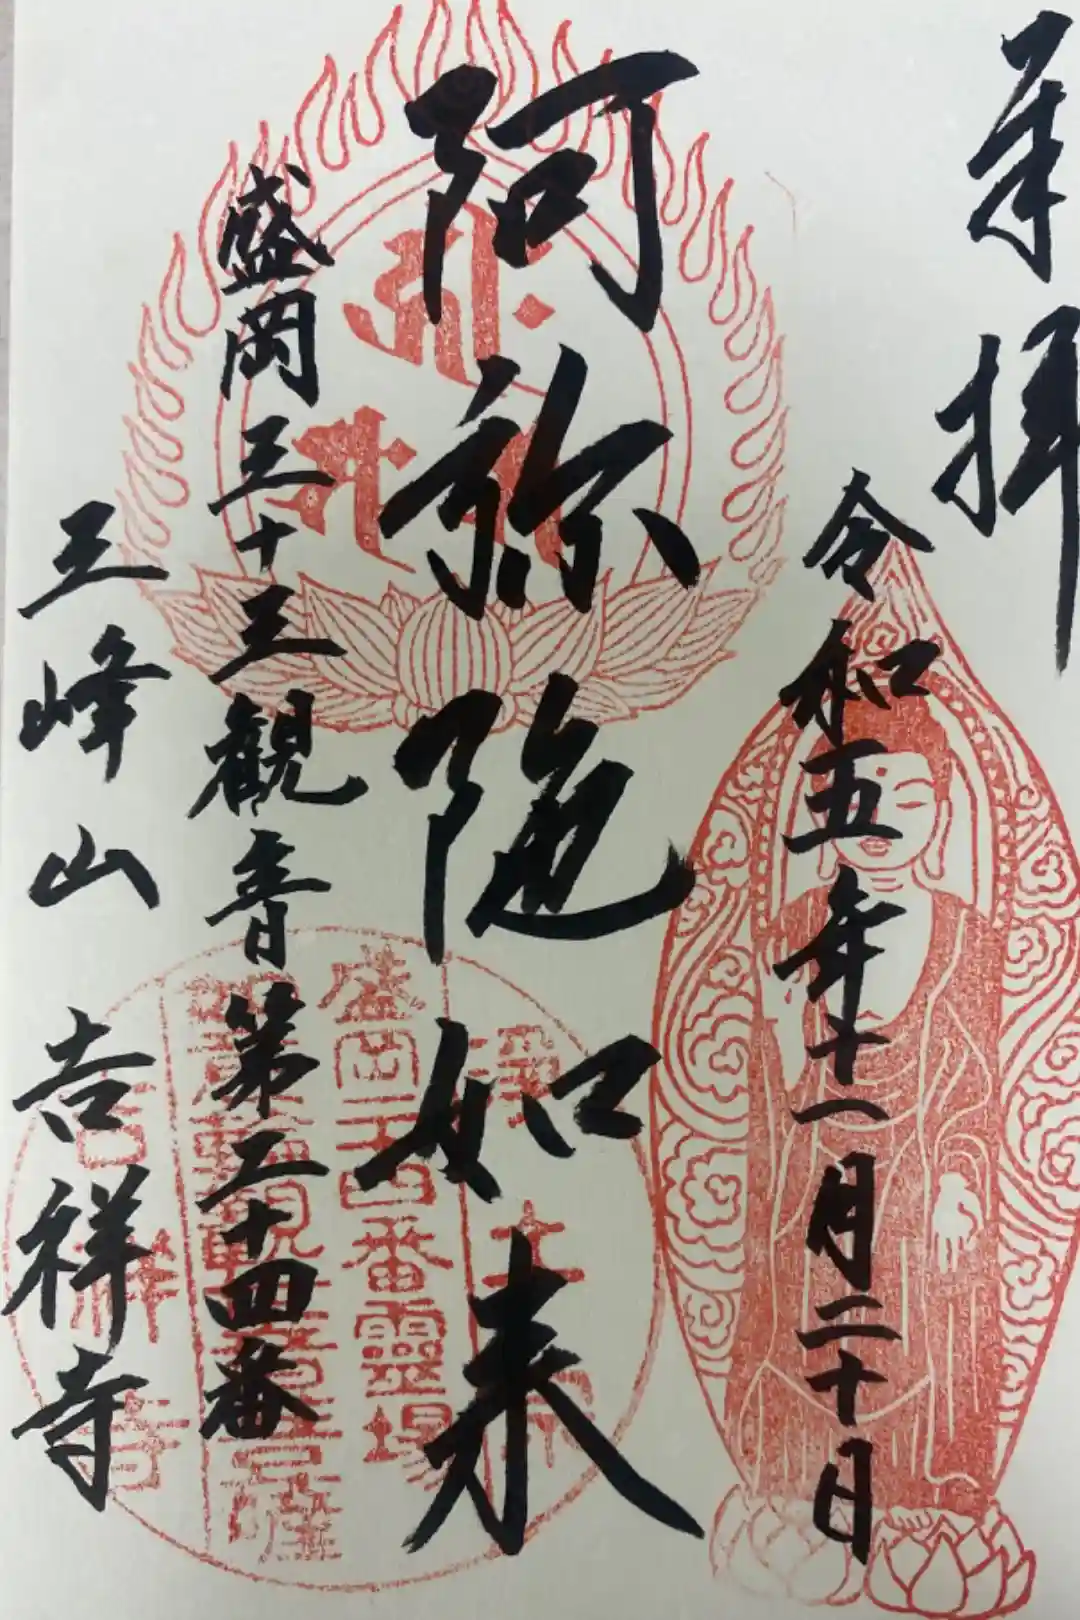 奉拝
令和五年十一月二十日
阿弥陀如来
盛岡三十三観音第二十四番
三峰山 吉祥寺
盛岡二十四番靈場
吉祥寺